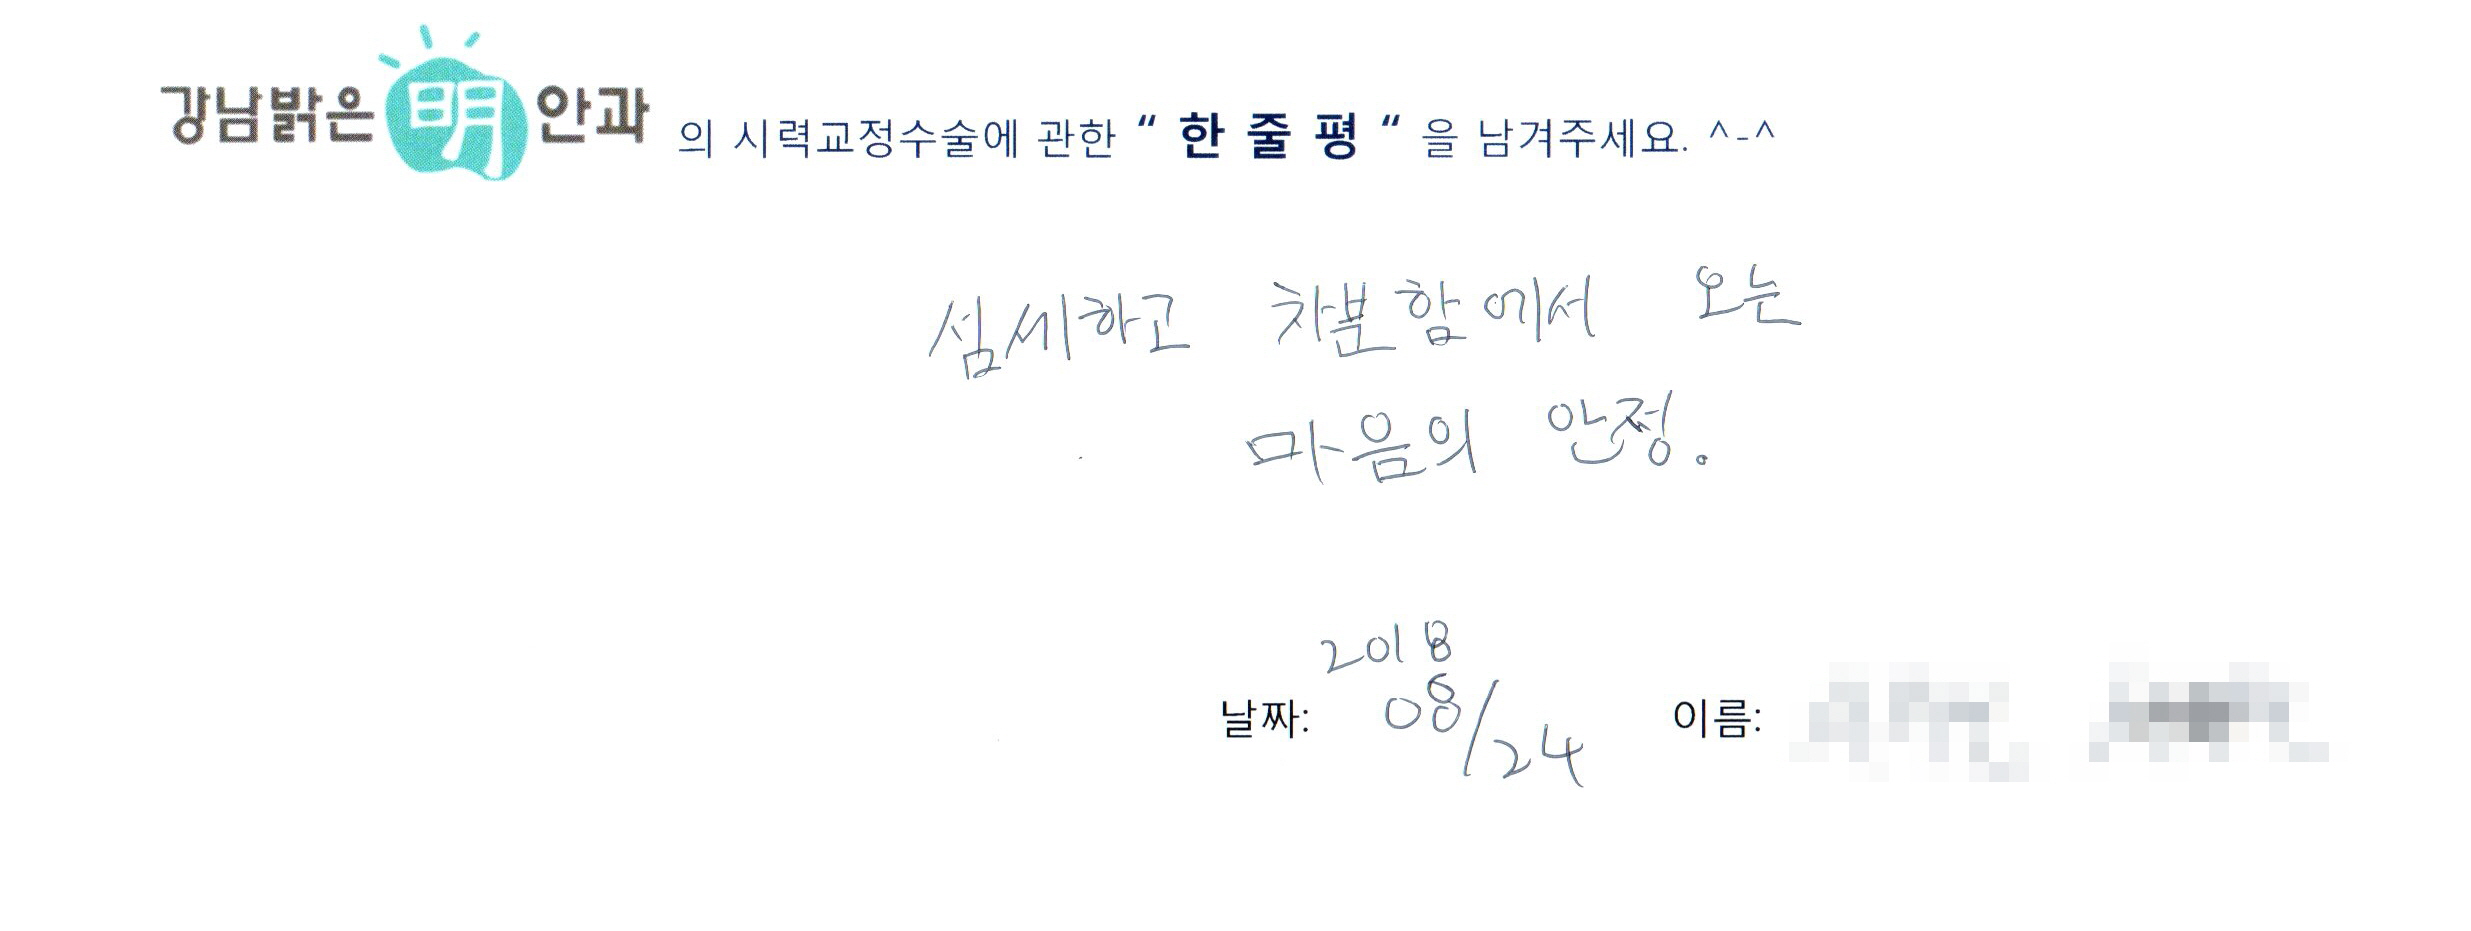 강남밝은 明 안과 의 시력교정수술에 관한 “ 한 줄 평 “ 을 남겨주세요. ^-^
섬세하고 차분함에서 오는
마음의 안정.
2018
날짜: 08/24 이름: